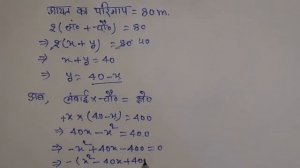 आयत का परिमाप = 80 m.
2 (लं० + चौ०) = 80
⇒ 2 (x + y) = 80 40
⇒ x + y = 40
⇒ y = 40 - x
अब, लंबाई x चौ० = क्षे०
x × (40 - x) = 400
⇒ 40x - x² = 400
⇒ -x² + 40x - 400 = 0
⇒ -(x² - 40x + 40